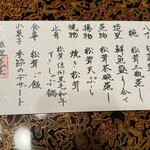 椀　松茸土瓶蒸し
造里　鮮魚盛り合わせ
蒸物　松茸茶碗蒸し
揚物　松茸天ぷら
焼物　焼き松茸
止肴　松茸信州黒毛和牛
すきしゃぶ鍋
食事　松茸ご飯
水菓子　季節のデザート